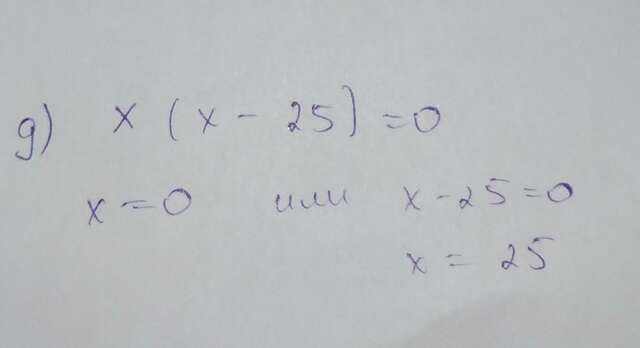 g) x (x - 25) = 0
x = 0 или x - 25 = 0
x = 25